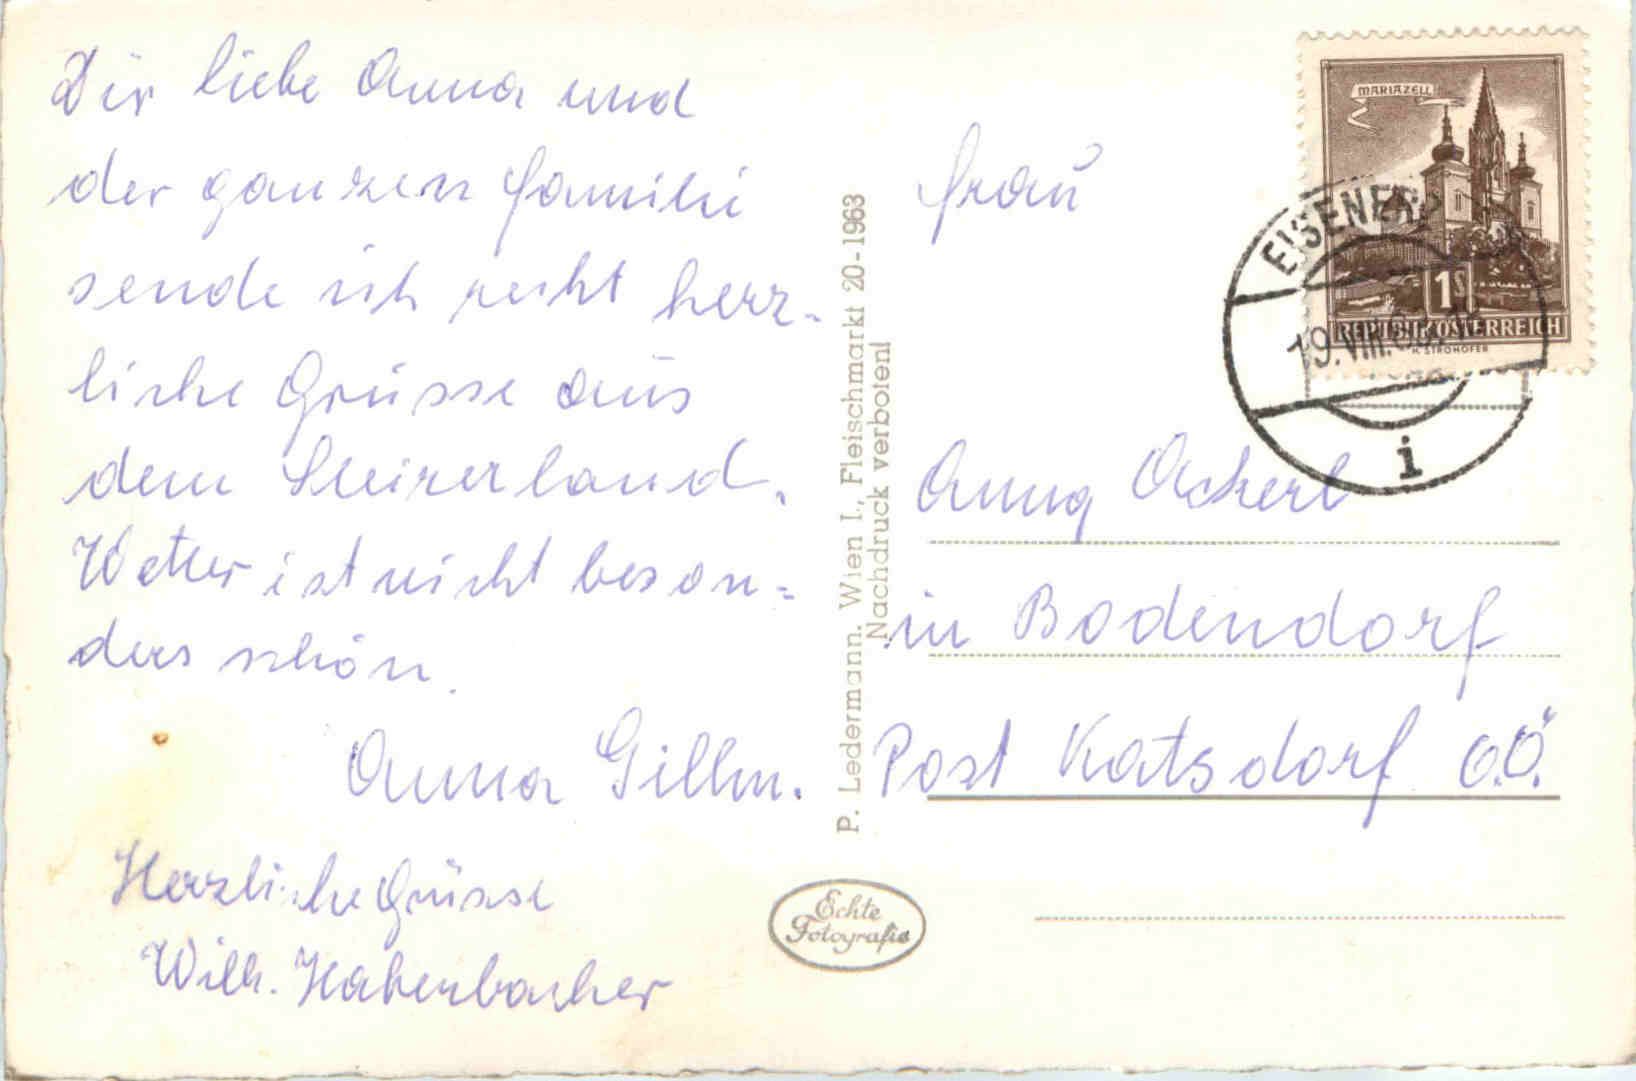 Dir liebe Anna und
der ganzen Familie
sende ich recht herz-
liche Grüsse aus
dem Steirerland.
Wetter ist nicht beson=
ders schön.
Anna Gillm.
Herzliche Grüsse
Wilh. Habenbacher
P. Ledermann. Wien I., Fleischmarkt 20-1963
Nachdruck verboten!
Echte
Fotografie
MARIAZELL
1S
REPUBLIK ÖSTERREICH
H. STROHOFER
EISENERZ
19.VIII.
i
Frau
Anna Ackerl
in Bodendorf
Post Katsdorf O.Ö.